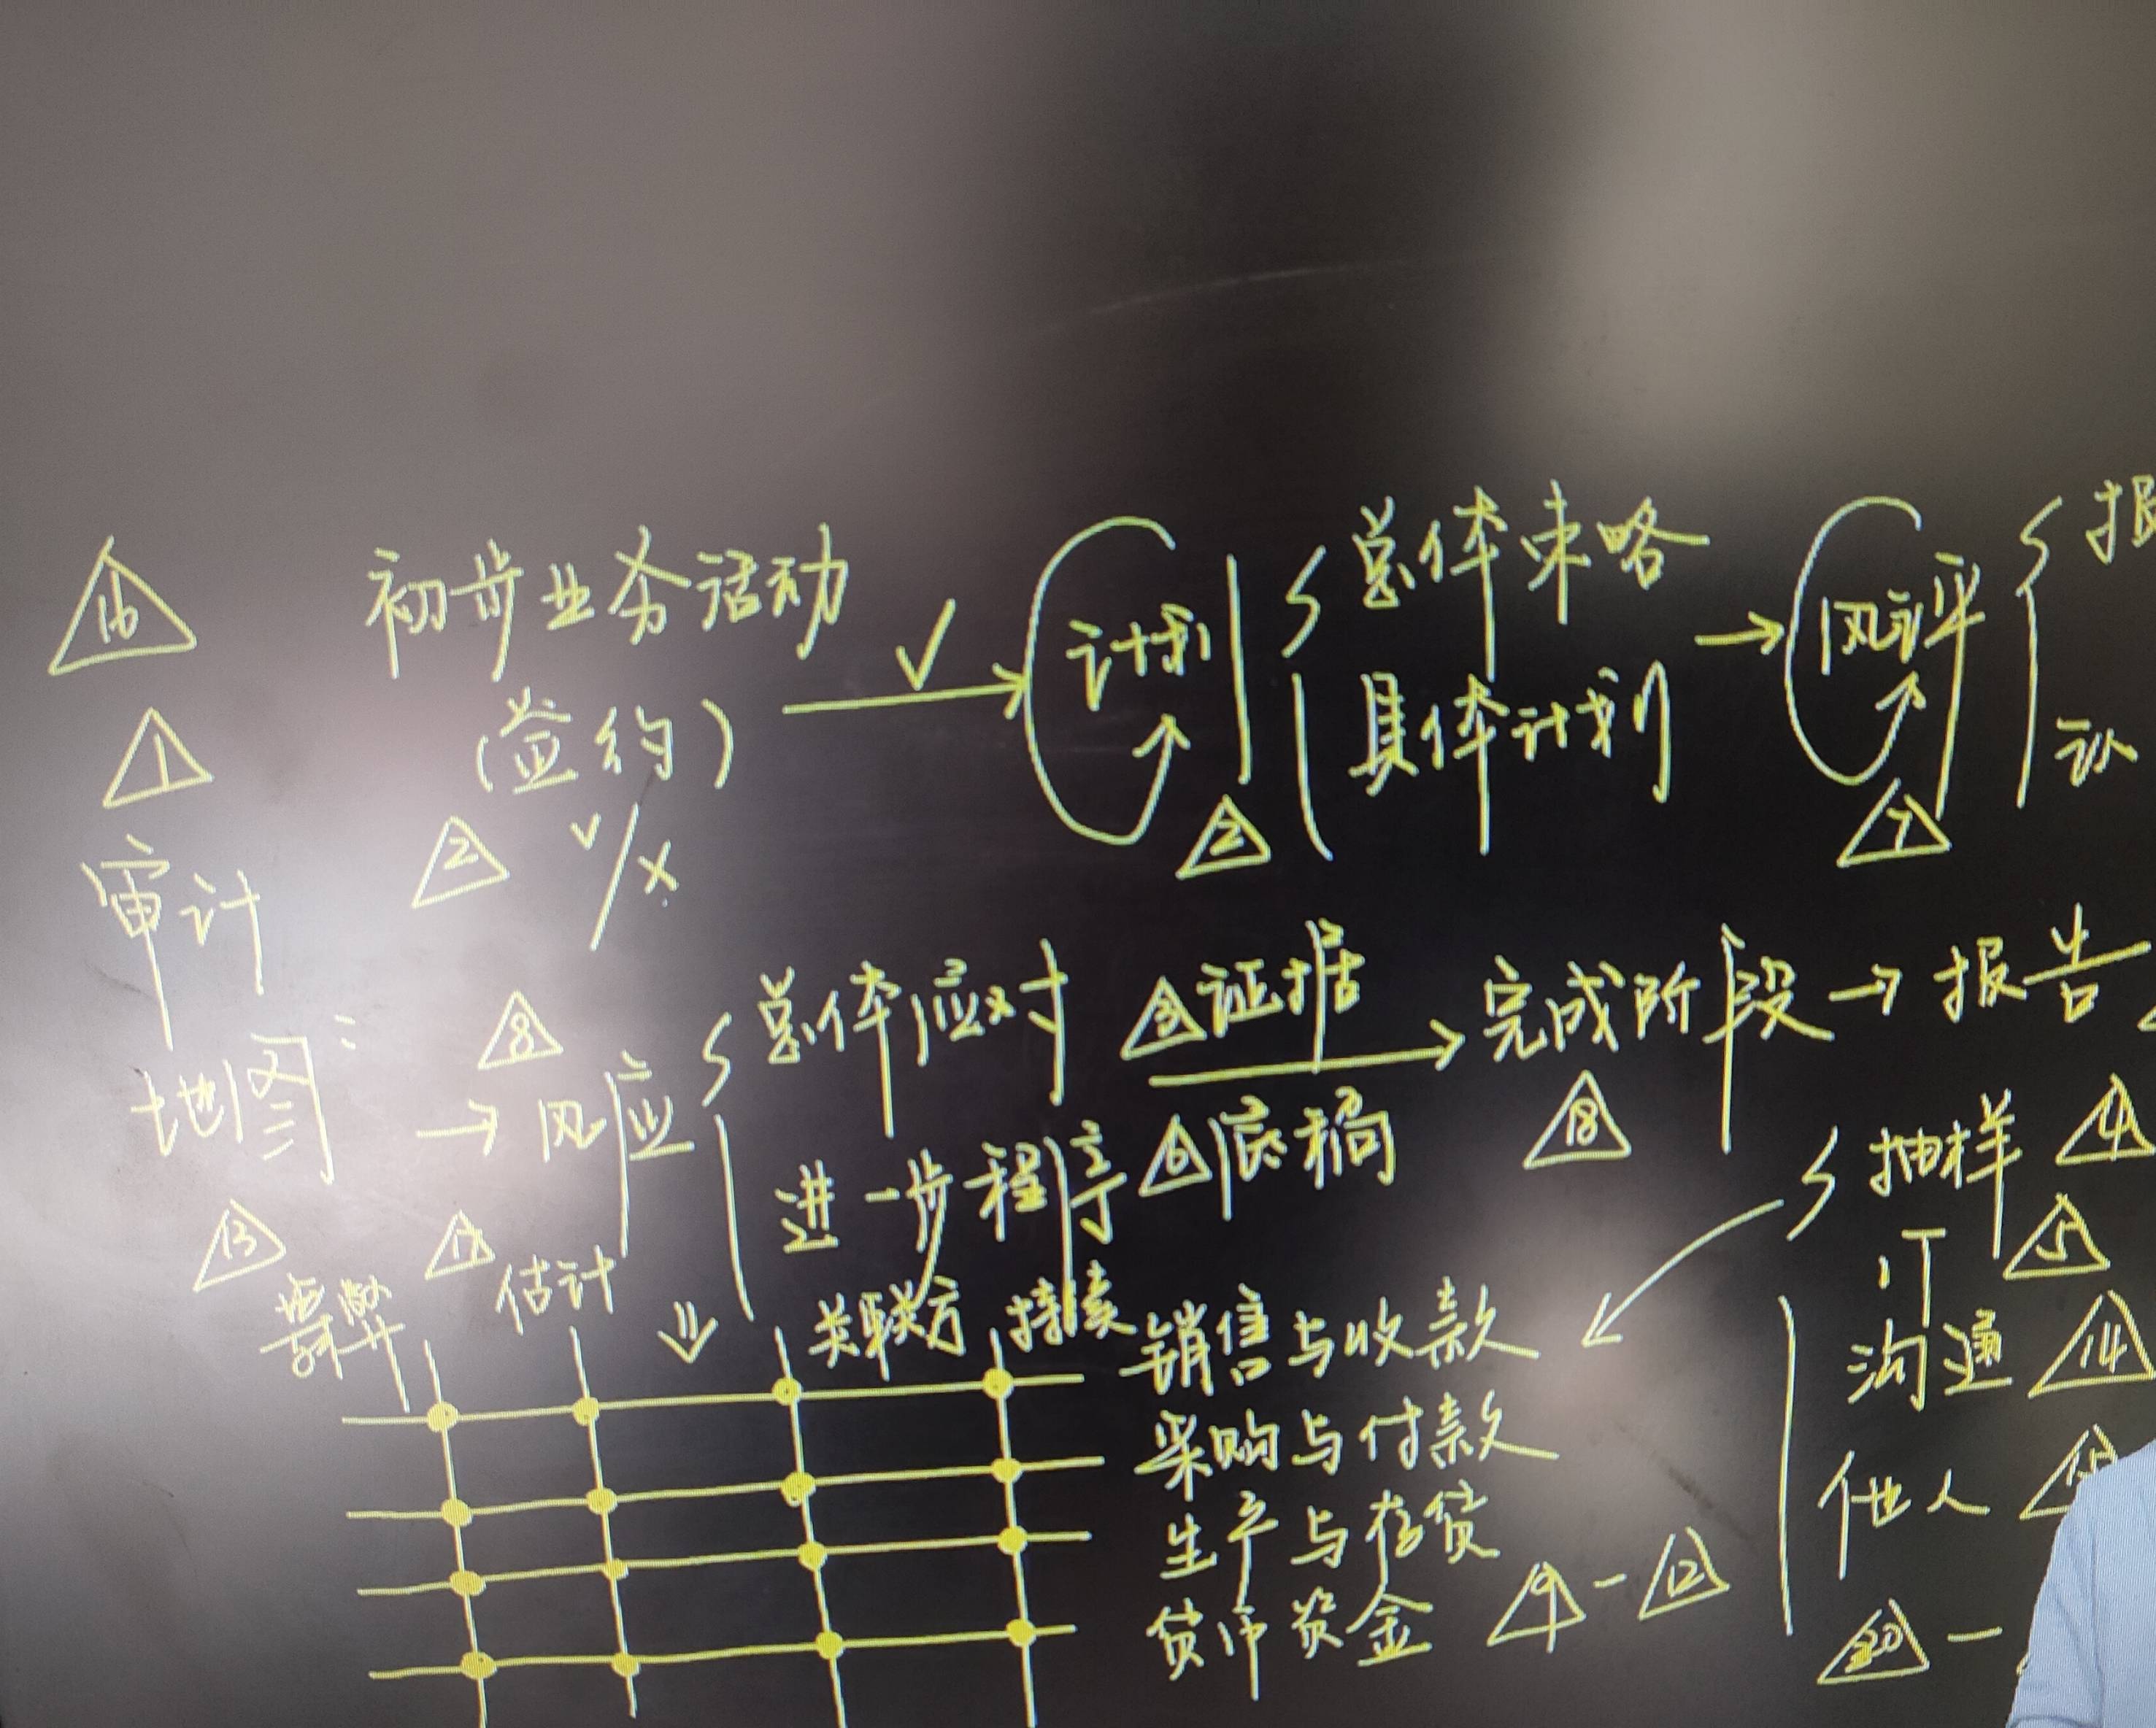 初步业务活动
(签约)
2 √/×
√
计划
2
总体策略
具体计划
风评
7
报
认
1
审计
地图:
8
风应
总体应对
进一步程序
3 证据
6 底稿
完成阶段
18
报告
13
舞弊
17
估计
关联方 持续
销售与收款
采购与付款
生产与存货
货币资金 9-12
抽样 4
IT 5
沟通 14
他人 15
20-